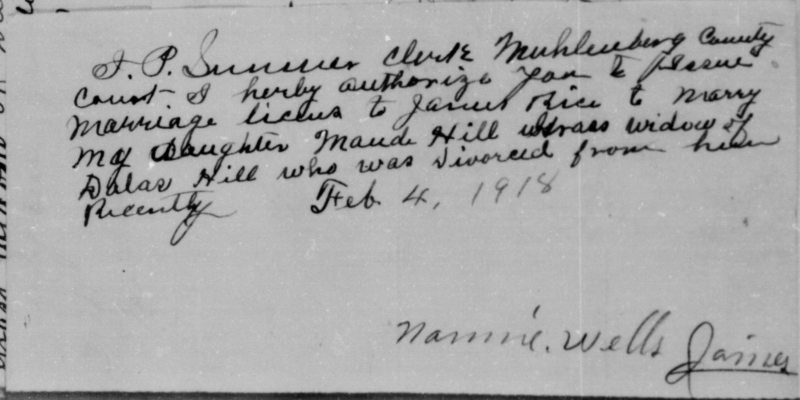 T. P. Summer Clerk Muhlenberg County
Court I herby authorize you to Issue
Marriage licens to James Rice to Marry
My Daughter Maude Hill widow of
Dalas Hill who was Divorced from him
Recently Feb 4, 1918
Nannie. Wells James